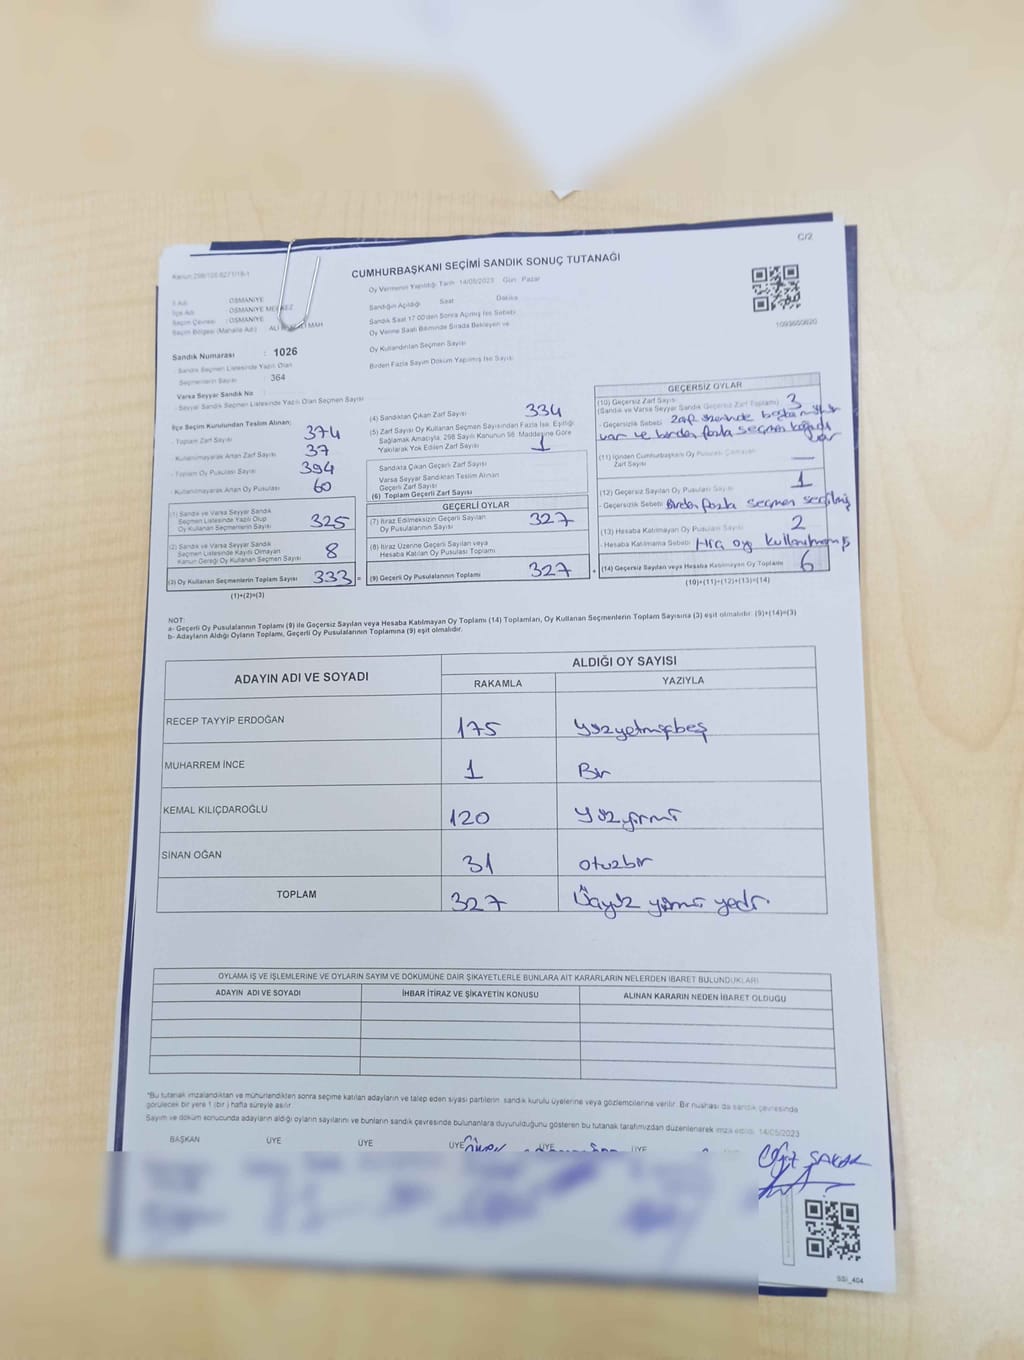 C/2
CUMHURBAŞKANI SEÇİMİ SANDIK SONUÇ TUTANAĞI
Oy Vermenin Yapıldığı Tarih: 14/05/2023 Gün : Pazar
İl Adı : OSMANİYE
İlçe Adı : OSMANİYE MERKEZ
Seçim Çevresi : OSMANİYE
Seçim Bölgesi (Mahalle Adı) MAH
Sandığın Açıldığı Saat Dakika
Sandık Saat 17:00'den Sonra Açılmış İse Sebebi
Oy Verme Saati Bitiminde Sırada Bekleyen ve
Oy Kullandırılan Seçmen Sayısı
Birden Fazla Sayım Döküm Yapılmış İse Sayısı
1093650620
Sandık Numarası : 1026
Sandık Seçmen Listesinde Yazılı Olan
Seçmenlerin Sayısı : 364
Varsa Seyyar Sandık No
- Seyyar Sandık Seçmen Listesinde Yazılı Olan Seçmen Sayısı
İlçe Seçim Kurulundan Teslim Alınan;
- Toplam Zarf Sayısı 374
- Kullanılmayarak Artan Zarf Sayısı 37
- Toplam Oy Pusulası Sayısı 394
- Kullanılmayarak Artan Oy Pusulası 60
(1) Sandık ve Varsa Seyyar Sandık
Seçmen Listesinde Yazılı Olup
Oy Kullanan Seçmenlerin Sayısı 325
(2) Sandık ve Varsa Seyyar Sandık
Seçmen Listesinde Kaydı Olmayan
Kanun Gereği Oy Kullanan Seçmen Sayısı 8
(3) Oy Kullanan Seçmenlerin Toplam Sayısı 333 =
(1)+(2)=(3)
(4) Sandıktan Çıkan Zarf Sayısı 334
(5) Zarf Sayısı Oy Kullanan Seçmen Sayısından Fazla İse, Eşitliği
Sağlamak Amacıyla, 298 Sayılı Kanunun 98. Maddesine Göre
Yakılarak Yok Edilen Zarf Sayısı 1
Sandıkta Çıkan Geçerli Zarf Sayısı
Varsa Seyyar Sandıktan Teslim Alınan
Geçerli Zarf Sayısı
(6) Toplam Geçerli Zarf Sayısı
GEÇERLİ OYLAR
(7) İtiraz Edilmeksizin Geçerli Sayılan
Oy Pusulalarının Sayısı 327
(8) İtiraz Üzerine Geçerli Sayılan veya
Hesaba Katılan Oy Pusulası Toplamı
(9) Geçerli Oy Pusulalarının Toplamı 327 +
GEÇERSİZ OYLAR
(10) Geçersiz Zarf Sayısı 3
(Sandık ve Varsa Seyyar Sandık Geçersiz Zarf Toplamı)
- Geçersizlik Sebebi zarf üzerinde başka mühür
var ve birden fazla seçmen kağıdı
var
(11) İçinden Cumhurbaşkanı Oy Pusulası Çıkmayan
Zarf Sayısı —
(12) Geçersiz Sayılan Oy Pusulası Sayısı 1
- Geçersizlik Sebebi Birden fazla seçmen seçilmiş
(13) Hesaba Katılmayan Oy Pusulası Sayısı 2
- Hesaba Katılmama Sebebi Hiç oy kullanılmamış
(14) Geçersiz Sayılan veya Hesaba Katılmayan Oy Toplamı 6
(10)+(11)+(12)+(13)=(14)
NOT:
a- Geçerli Oy Pusulalarının Toplamı (9) ile Geçersiz Sayılan veya Hesaba Katılmayan Oy Toplamı (14) Toplamları, Oy Kullanan Seçmenlerin Toplam Sayısına (3) eşit olmalıdır. (9)+(14)=(3)
b- Adayların Aldığı Oyların Toplamı, Geçerli Oy Pusulalarının Toplamına (9) eşit olmalıdır.
ADAYIN ADI VE SOYADI
ALDIĞI OY SAYISI
RAKAMLA YAZIYLA
RECEP TAYYİP ERDOĞAN 175 yüzyetmişbeş
MUHARREM İNCE 1 Bir
KEMAL KILIÇDAROĞLU 120 yüzyirmi
SİNAN OĞAN 31 otuzbir
TOPLAM 327 Üçyüz yirmi yedi
OYLAMA İŞ VE İŞLEMLERİNE VE OYLARIN SAYIM VE DÖKÜMÜNE DAİR ŞİKAYETLERLE BUNLARA AİT KARARLARIN NELERDEN İBARET BULUNDUKLARI
ADAYIN ADI VE SOYADI İHBAR İTİRAZ VE ŞİKAYETİN KONUSU ALINAN KARARIN NEDEN İBARET OLDUĞU
*Bu tutanak imzalandıktan ve mühürlendikten sonra seçime katılan adayların ve talep eden siyasi partilerin sandık kurulu üyelerine veya gözlemcilerine verilir. Bir nüshası da sandık çevresinde
görülecek bir yere 1 (bir) hafta süreyle asılır.
Sayım ve döküm sonucunda adayların aldığı oyların sayılarını ve bunların sandık çevresinde bulunanlara duyurulduğunu gösteren bu tutanak tarafımızdan düzenlenerek imza edildi. 14/05/2023
BAŞKAN ÜYE ÜYE ÜYE ÜYE ÜYE
SSI_404